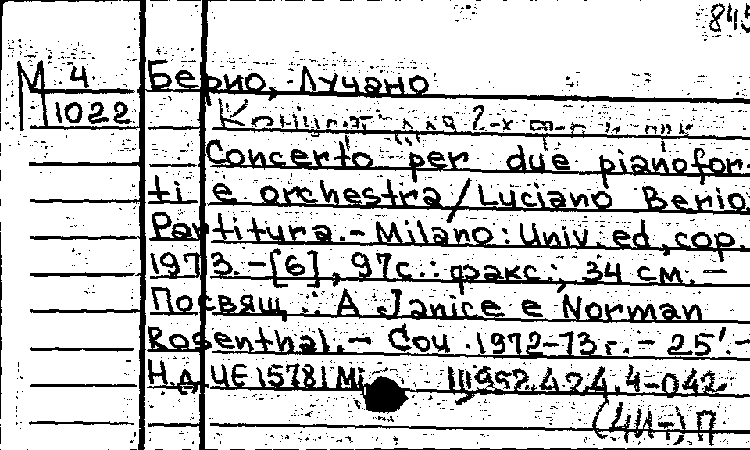 845
М 4 Берио, Лучано
1022 Концерт для 2-х ф-п и орк
Concerto per due pianofor-
ti e orchestra/Luciano Berio.
Partitura.- Milano: Univ. ed, cop.
1973.-[6], 97с.: факс.; 34 см. -
Посвящ.: A Janice e Norman
Rosenthal.- Соч. 1972-73г. - 25'.-
Н.д. UE 15781 Mi 952.424.4-042
(4И-)П